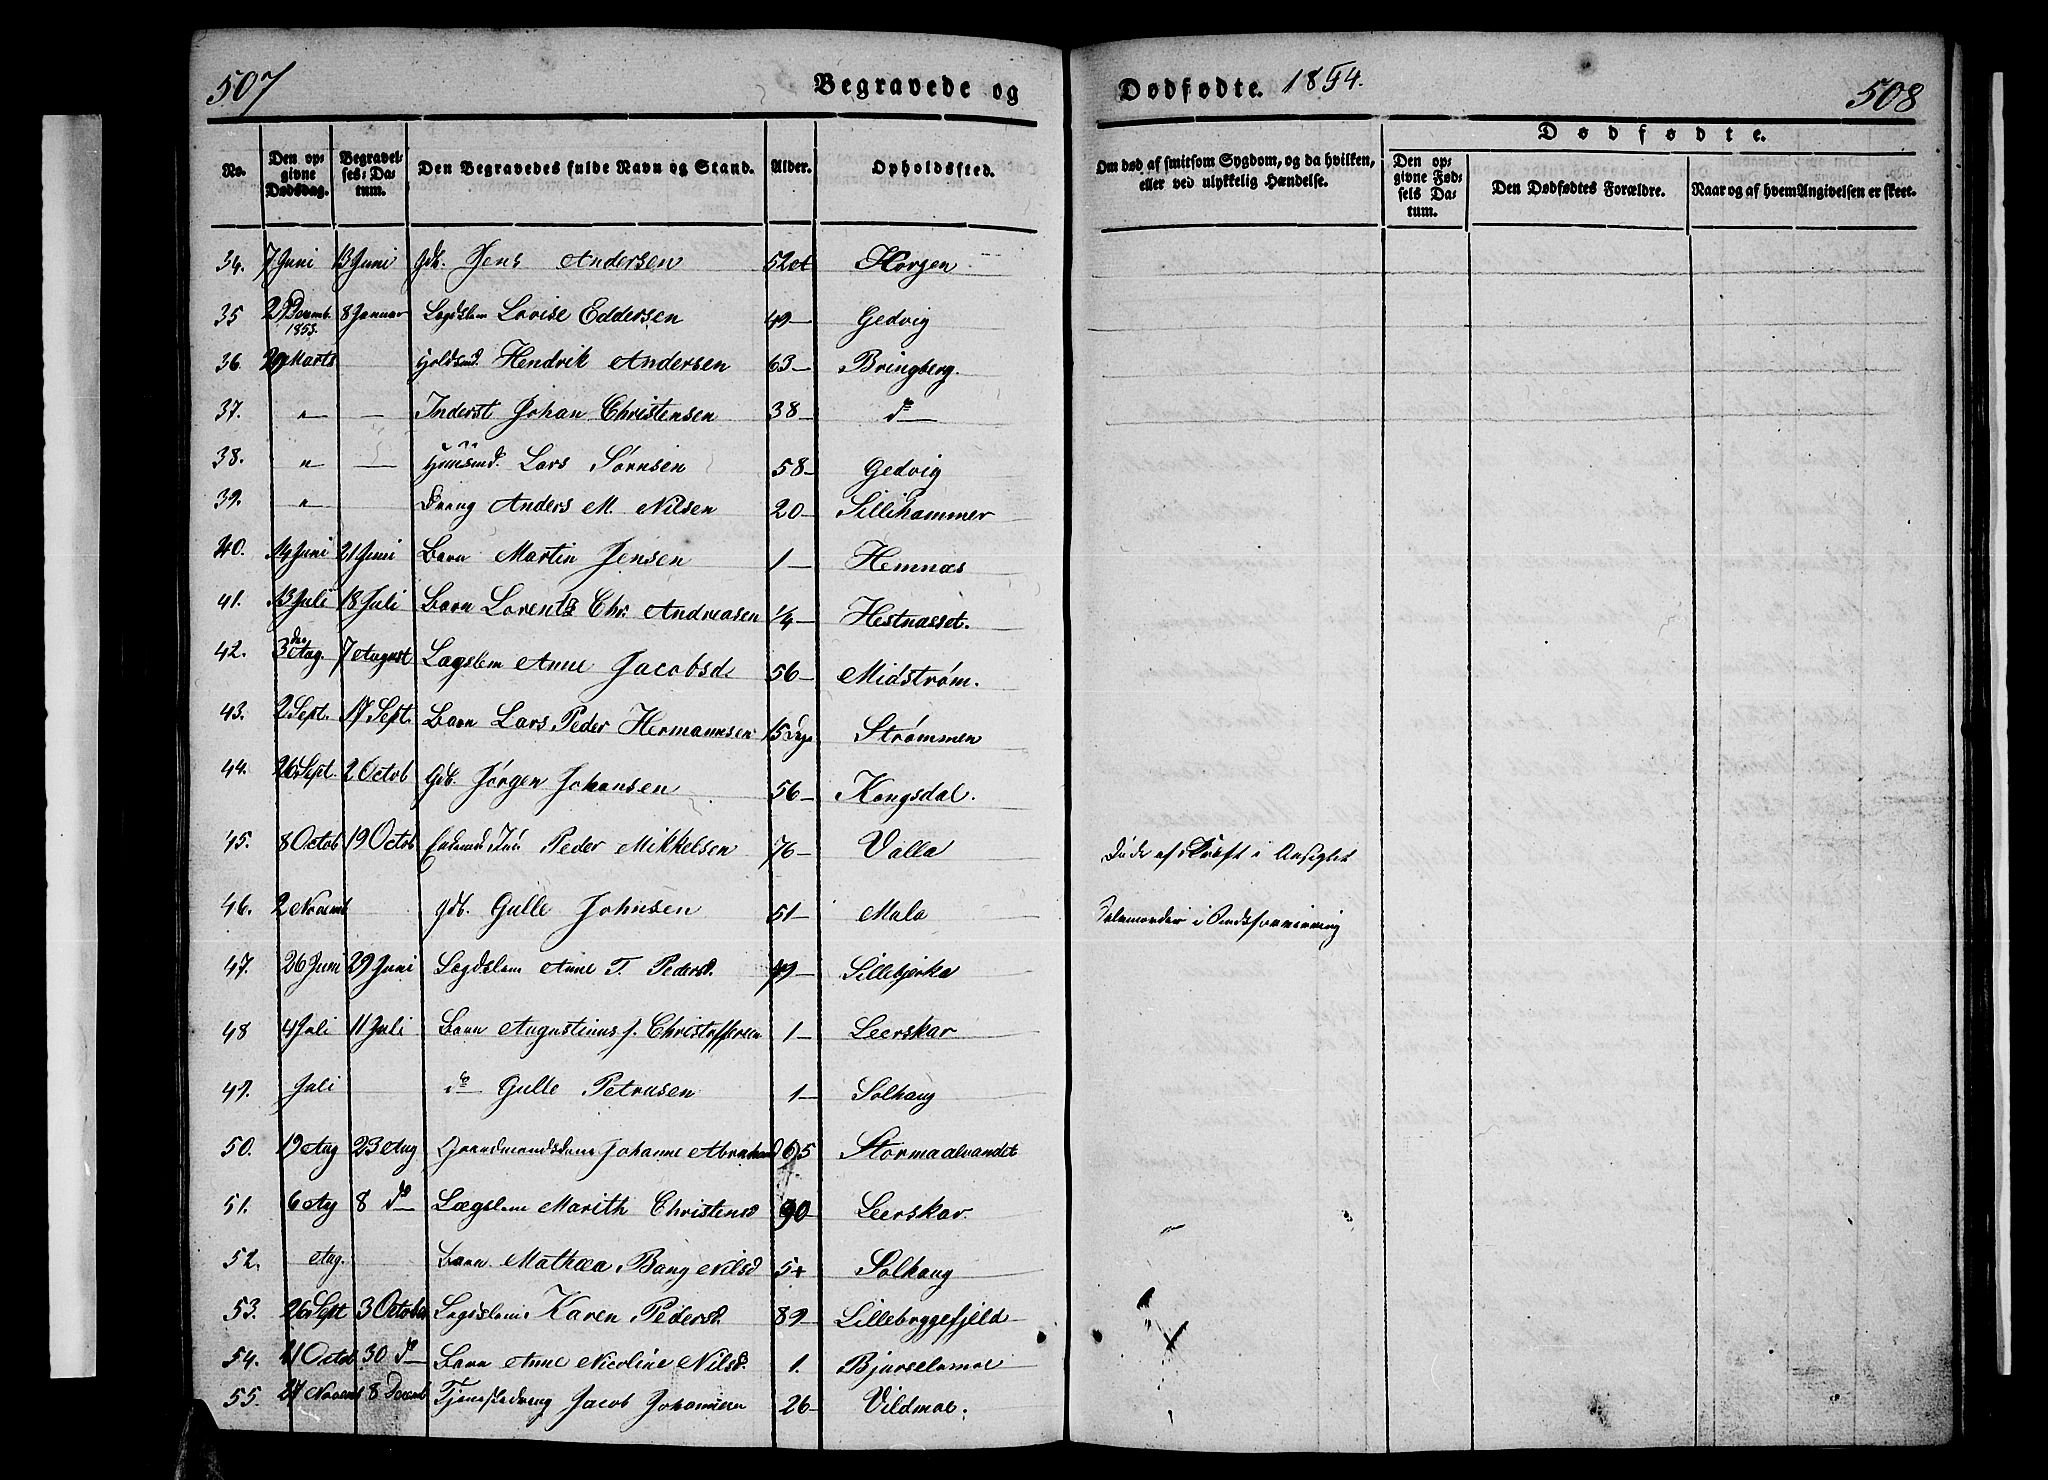 507
Begravede og
Dødfødte. 1854.
508
No.
Den opgivne Dødsdag.
Begravelses-Datum.
Den Begravedes fulde Navn og Stand.
Alder.
Opholdssted.
Om død af smitsom Sygdom, og da hvilken, eller ved ulykkelig Hændelse.
Dødfødte.
Den opgivne Fødsels Datum.
Den Dødfødtes Forældre.
Naar og af hvem Angivelsen er skeet.
34. 7 Juni 13 Juni Gdb. Jens Andersen 52 Horgen
35 29 Decemb. 1853. 8 Januar Lagdslem Lovise Eddersen 49 — Gedvig
36. 29 Marts Holdsmd. Hendrik Andersen 63 — Bringberg.
37. " — Inderst Johan Christensen 38 — do
38. " — Huusmd. Lars Sørnsen 58 — Gedvig
39. " Dreng Anders M. Nilsen 20 — Lillihammer
40. 14 Juni 21 Juni Barn Martin Jensen 1 — Hemnæs
41. 13 Juli 18 Juli Barn Lorents Chr. Andreasen 1/4 — Hestnæsset.
42. 3die Aug. 7 August Lægslem Anne Jacobsd. 56 — Midstrøm.
43. 2 Sept. 17 Sept. Barn Lars Peder Hermannsen 15 Dge Strømmen
44. 26 Sept. 2 Octob Gdb. Jørgen Johansen 56 — Kongsdal.
45. 8 Octob 19 Octob Peder Mikkelsen 76 — Valla Døde af Kræft i Ansigtet
46. 2 Novemb gdb. Gulle Johnsen 51 — Mala i
47. 26 Juni 29 Juni Lægdslem Anne T. Pedersd. 49 — Lillebjerka
48 4 Juli 11 Juli Barn Augustinus J. Christoffersen 1 — Leerskar
49. Juli do Gulle Petrusen 1 — Solhaug
50. 19 Aug 23 Aug Johanne Abrahamsd 65 Stormaalvandet
51. 6 Aug 8 do Lægslem Marith Christensd 90 Leerskar.
52. Aug. Barn Mathea Bang Nilsd 5 Solhaug
53. 26 Sept 3 October Lægdslem Karen Pedersd. 89 — Lillebyggefjeld
54. 21 Octob 30 do Barn Anne Nicoline Nilsd. 1. Bjurselvmoe
55. 27 Novemb 8 Decemb Tjenestedreng Jacob Johannsen 26 — Vildmoe.